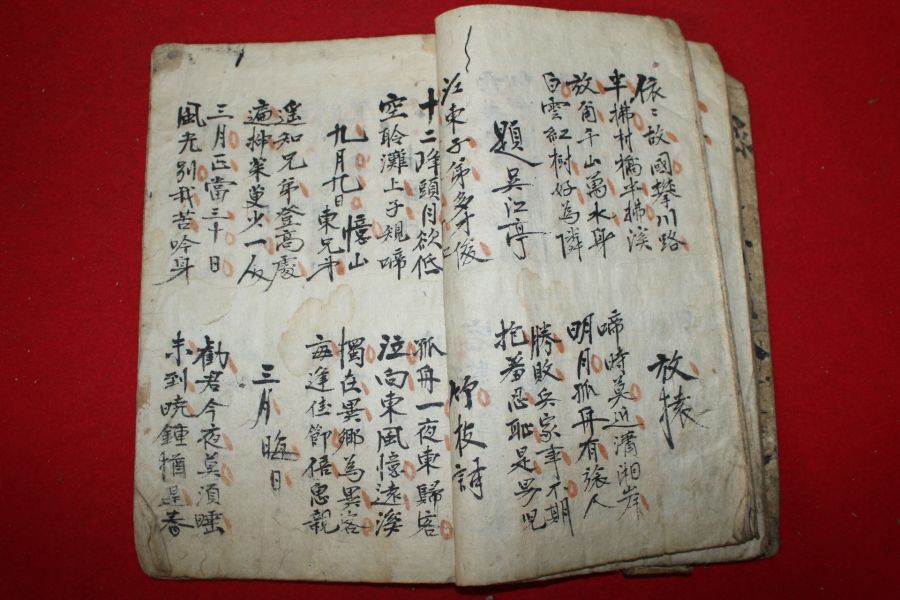 依〻故國樊川路
半拂村橋半拂溪
放猿
放爾千山萬水身
白雲紅樹好為隣
啼時莫近瀟湘岸
明月孤舟有旅人
題吳江亭
勝敗兵家事不期
抱羞忍恥是男児
江東子弟多才俊
竹枝詞
十二峰頭月欲低
空聆灘上子規啼
孤舟一夜東歸客
泣向東風憶遠溪
九月九日憶山
東兄弟
獨在異鄉為異客
每逢佳節倍思親
遥知兄弟登高處
遍揷茱萸少一人
三月晦日
三月正當三十日
風光別我苦吟身
勸君今夜莫須睡
未到曉鍾猶是春